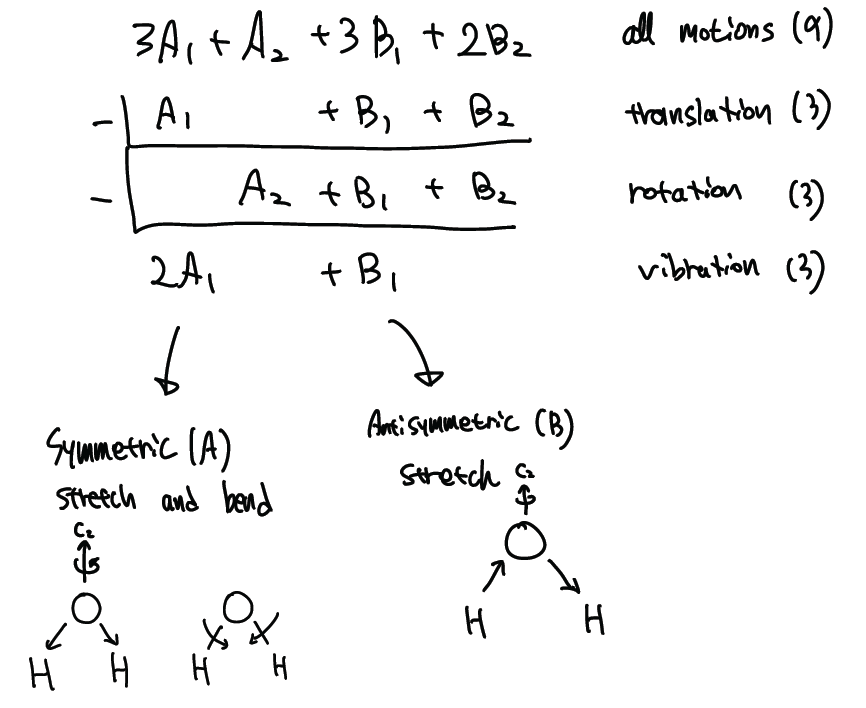 3A₁ + A₂ + 3B₁ + 2B₂ all motions (9)
- A₁ + B₁ + B₂ translation (3)
- A₂ + B₁ + B₂ rotation (3)
2A₁ + B₁ vibration (3)
Symmetric (A)
stretch and bend
Antisymmetric (B)
stretch
C₂
C₂
O
H H
O
H H
O
H H